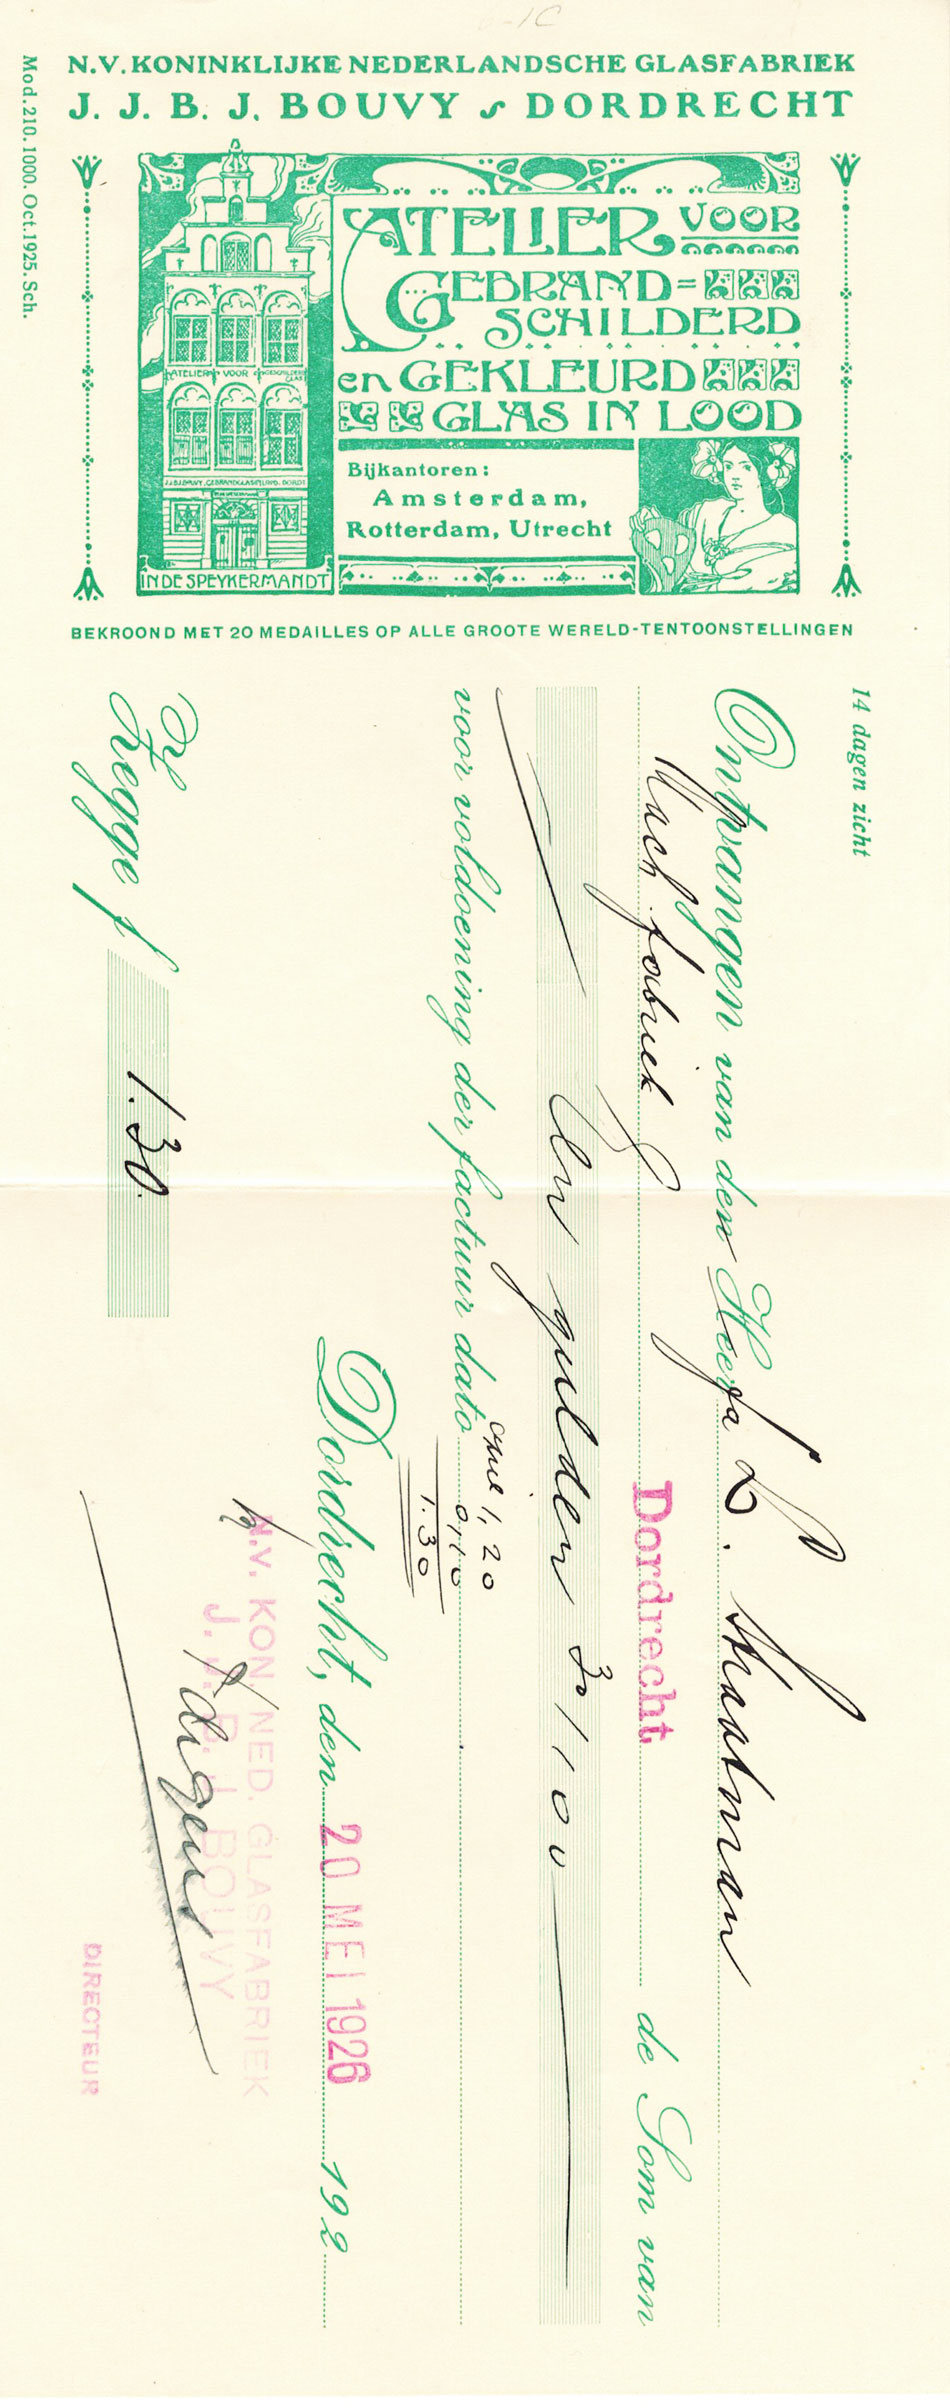 N.V. KONINKLIJKE NEDERLANDSCHE GLASFABRIEK
J. J. B. J. BOUVY DORDRECHT
Mod. 210. 1000. Oct. 1925. Sch.
ATELIER VOOR
GEBRAND=
SCHILDERD
en GEKLEURD
GLAS IN LOOD
ATELIER VOOR
GLAS
IN DE SPEYKERMANDT
Bijkantoren:
Amsterdam,
Rotterdam, Utrecht
BEKROOND MET 20 MEDAILLES OP ALLE GROOTE WERELD-TENTOONSTELLINGEN
14 dagen zicht
Ontvangen van den Heer fa L. Straatman
Mach. fabriek Dordrecht. de Som van
Een gulden 30/100
voor voldoening der factuur dato
1,20
0,10
1.30
Dordrecht, den 20 MEI 1926 192
Zegge f 1.30.
N.V. KON. NED. GLASFABRIEK
J. J. B. J. BOUVY
DIRECTEUR